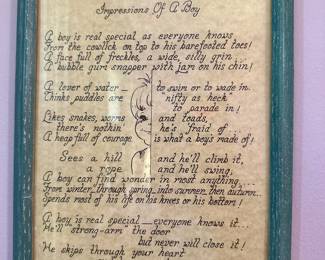 Impressions Of A Boy
A boy is real special as everyone knows
From the cowlick on top to his barefooted toes!
A face full of freckles, a wide, silly grin...
A bubble gum snapper with jam on his chin!
A lover of water — to swim or to wade in
Thinks puddles are nifty as heck
to parade in!
Likes snakes, worms and toads,
there's nothin' he's afraid of
A heap full of courage is what a boy's made of!
Sees a hill and he'll climb it,
a rope and he'll swing,
A boy can find wonder in most anything...
From winter through spring into summer then autumn...
Spends most of his life on his knees or his bottom!
A boy is real special — everyone knows it...
He'll strong-arm the door
but never will close it!
He skips through your heart